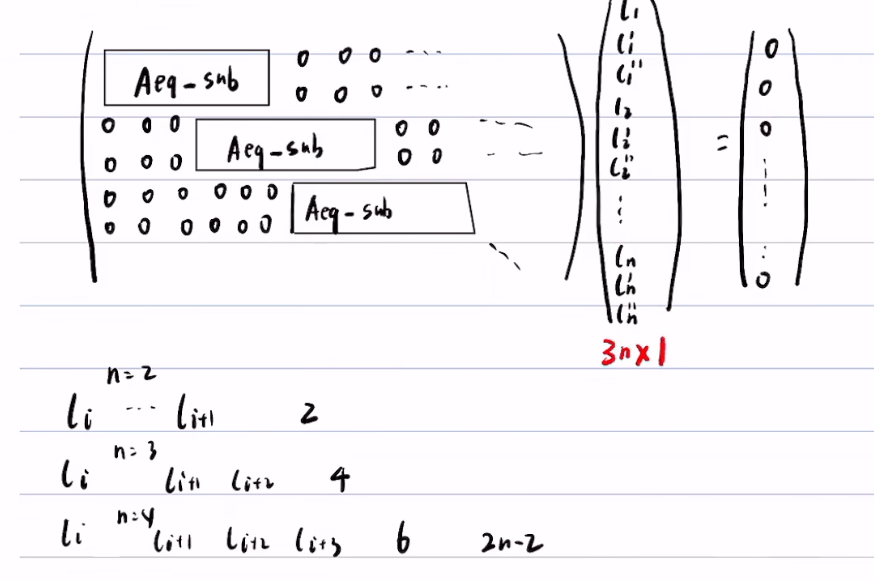 Aeq-sub 0 0 0 ....
0 0 0 ....
0 0 0 Aeq-sub 0 0 ---
0 0 0 0 0 - --
0 0 0 0 0 0 Aeq-sub
0 0 0 0 0 0
l₁
l₁'
l₁''
l₂
l₂'
l₂''
⋮
lₙ
lₙ'
lₙ''
=
0
0
0
⋮
0
3n×1
n=2
lᵢ ... lᵢ₊₁ 2
n=3
lᵢ lᵢ₊₁ lᵢ₊₂ 4
n=4
lᵢ lᵢ₊₁ lᵢ₊₂ lᵢ₊₃ 6 2n-2